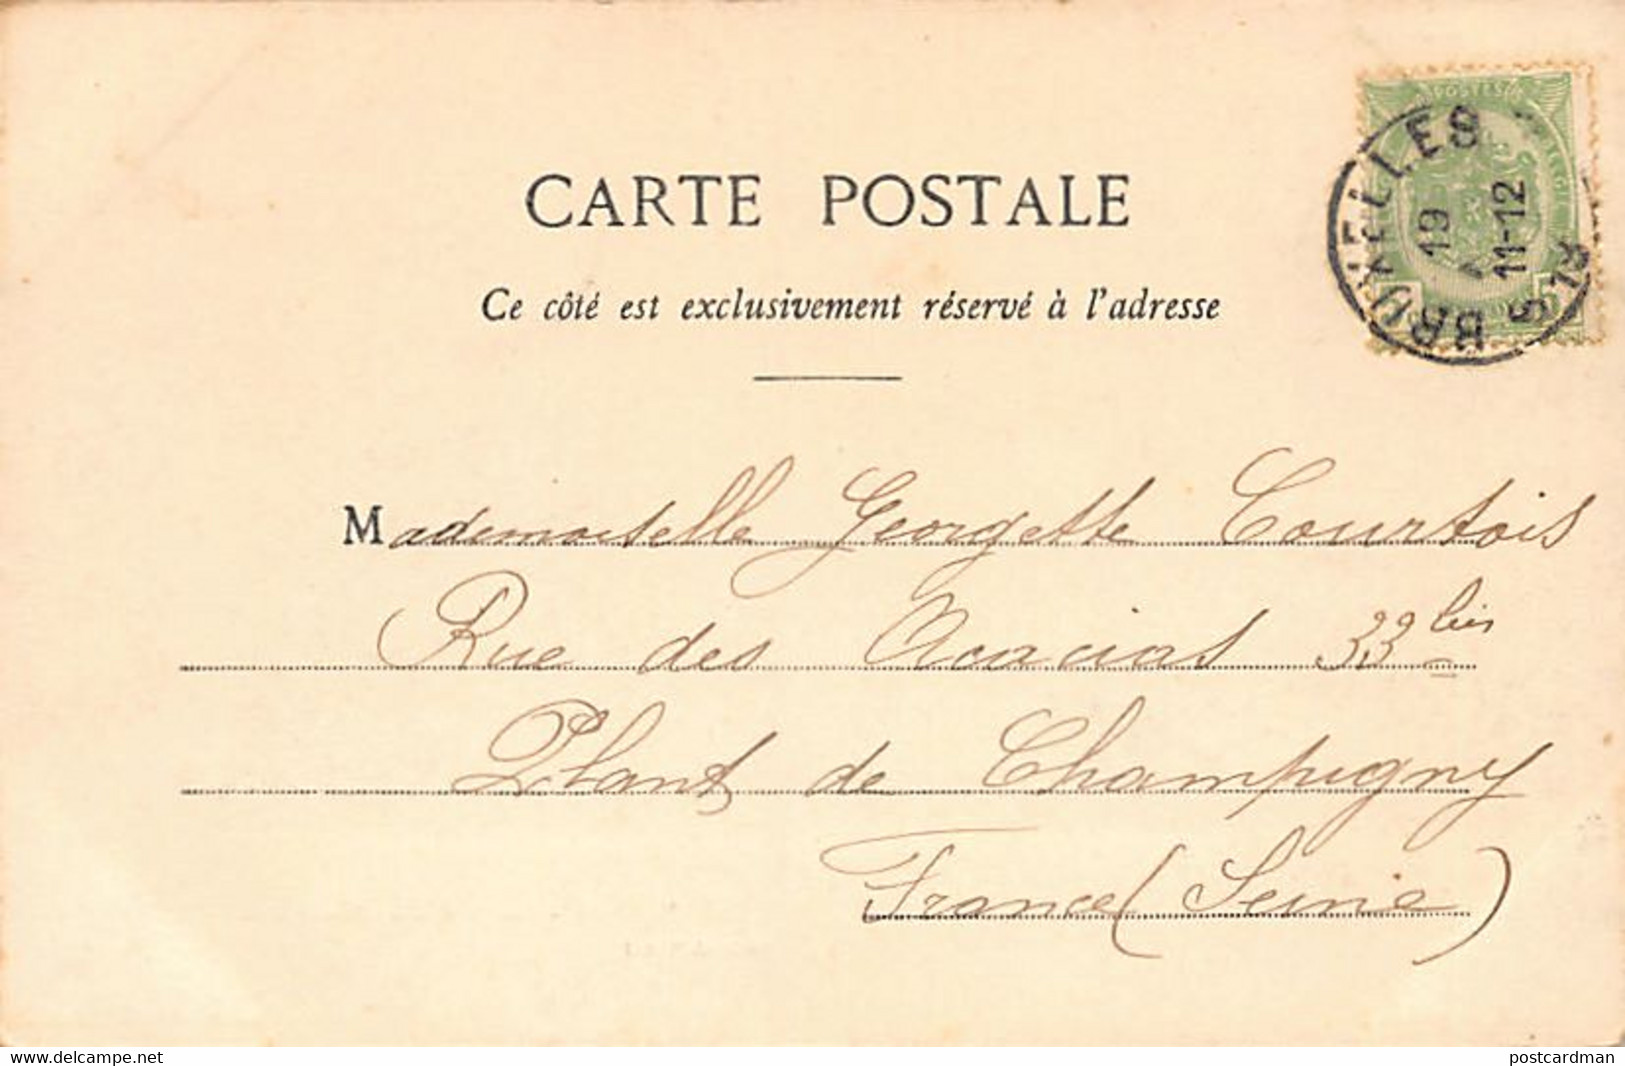 CARTE POSTALE
Ce côté est exclusivement réservé à l'adresse
POSTES
BRUXELLES
19
11-12
Mademoiselle Georgette Courtois
Rue des Acacias 33 bis
Plant de Champigny
France (Seine)
www.delcampe.net
postcardman